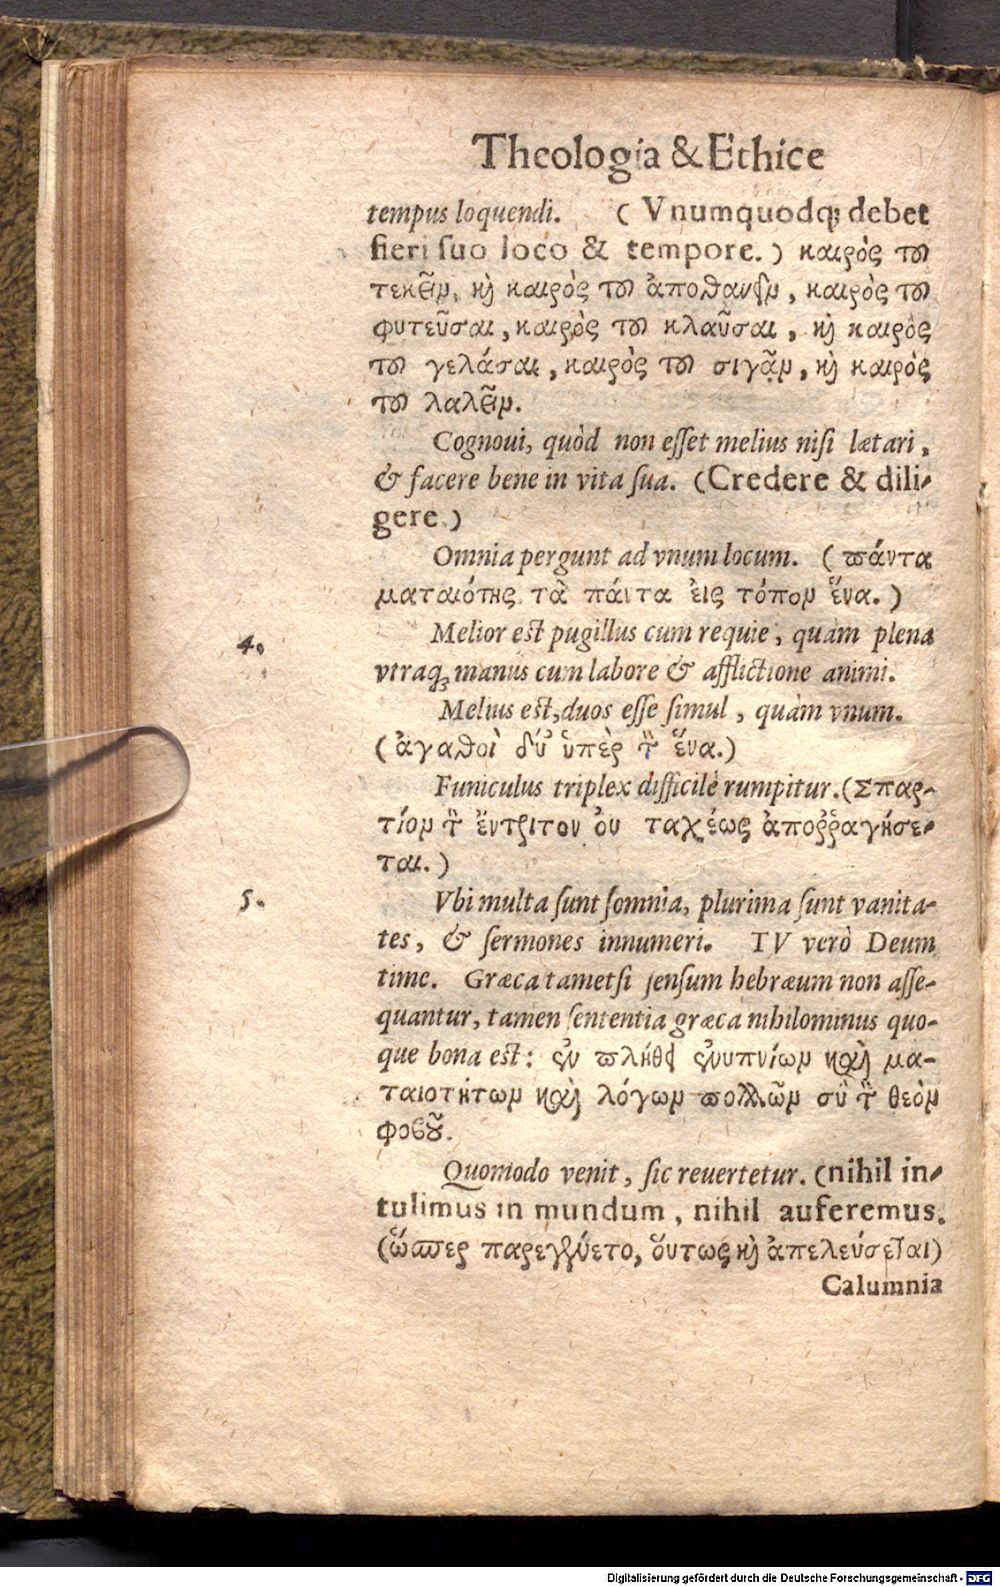 Theologia & Ethice
tempus loquendi. ( Vnumquodq; debet
fieri suo loco & tempore. ) καιρὸς τοῦ
τεκεῖν, καὶ καιρὸς τοῦ ἀποθανεῖν, καιρὸς τοῦ
φυτεῦσαι, καιρὸς τοῦ κλαῦσαι, καὶ καιρὸς
τοῦ γελάσαι, καιρὸς τοῦ σιγᾷν, καὶ καιρὸς
τοῦ λαλεῖν.
Cognoui, quòd non esset melius nisi lætari,
& facere bene in vita sua. (Credere & dili-
gere.)
Omnia pergunt ad vnum locum. ( πάντα
ματαιότης τὰ πάντα εἰς τόπον ἕνα. )
4. Melior est pugillus cum requie, quàm plena
vtraq; manus cum labore & afflictione animi.
Melius est, duos esse simul, quàm vnum.
(ἀγαθοὶ δύο ὑπὲρ τὸν ἕνα.)
Funiculus triplex difficilè rumpitur. (Σπαρ-
τίον τὸ ἔντριτον οὐ ταχέως ἀποῤῥαγήσε-
ται.)
5. Vbi multa sunt somnia, plurima sunt vanita-
tes, & sermones innumeri. TV verò Deum
time. Græca tametsi sensum hebræum non asse-
quantur, tamen sententia græca nihilominus quo-
que bona est: ἐν πλήθει ἐνυπνίων καὶ μα-
ταιοτήτων καὶ λόγων πολλῶν σὺ τὸν θεὸν
φοβοῦ.
Quomodo venit, sic reuertetur. (nihil in-
tulimus in mundum, nihil auferemus.
(ὥσπερ παρεγένετο, οὕτως καὶ ἀπελεύσεται)
Calumnia
Digitalisierung gefördert durch die Deutsche Forschungsgemeinschaft - DFG